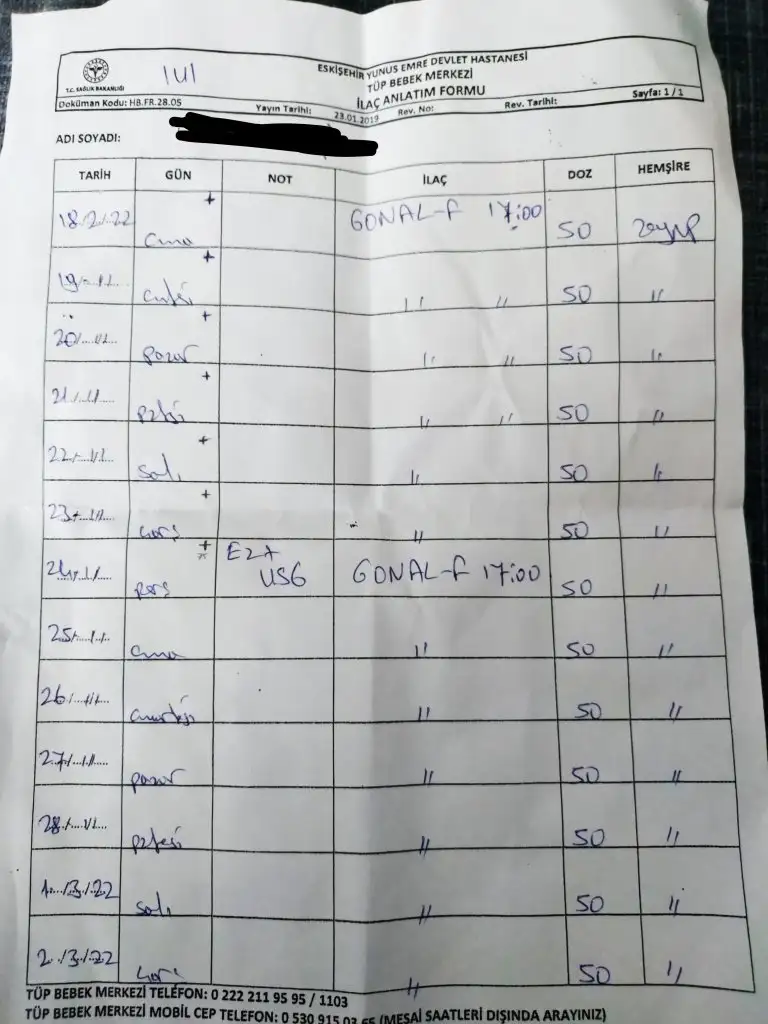 IUI
ESKİŞEHİR YUNUS EMRE DEVLET HASTANESİ
TÜP BEBEK MERKEZİ
İLAÇ ANLATIM FORMU
T.C. SAĞLIK BAKANLIĞI
Doküman Kodu: HB.FR.28.05 Yayın Tarihi: 23.01.2019 Rev. No: Rev. Tarihi: Sayfa: 1 / 1
ADI SOYADI:
TARİH GÜN NOT İLAÇ DOZ HEMŞİRE
18/2/22 Cuma + GONAL-F 17:00 50 Zeynep
19 + " " 50 "
20 Pazar + " " 50 "
21 + " " 50 "
22 Salı + " 50 "
23 + " 50 "
24 + USG GONAL-F 17:00 50 "
25 Cuma " 50 "
26 " 50 "
27 pazar " 50 "
28 " 50 "
1/3/22 salı " 50 "
2/3/22 " 50 "
TÜP BEBEK MERKEZİ TELEFON: 0 222 211 95 95 / 1103
TÜP BEBEK MERKEZİ MOBİL CEP TELEFON: 0 530 915 03 65 (MESAİ SAATLERİ DIŞINDA ARAYINIZ)